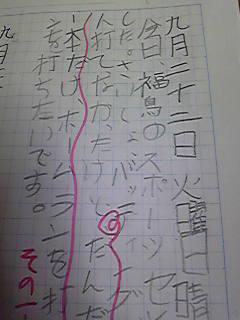 九月二十二日 火曜日 晴
今日、福島のスポーツセ
した。さいしょ、バッティ
打てなかったけど、だんだ
一本だけ、ホームランを打
を打ちたいです。 その一
九月